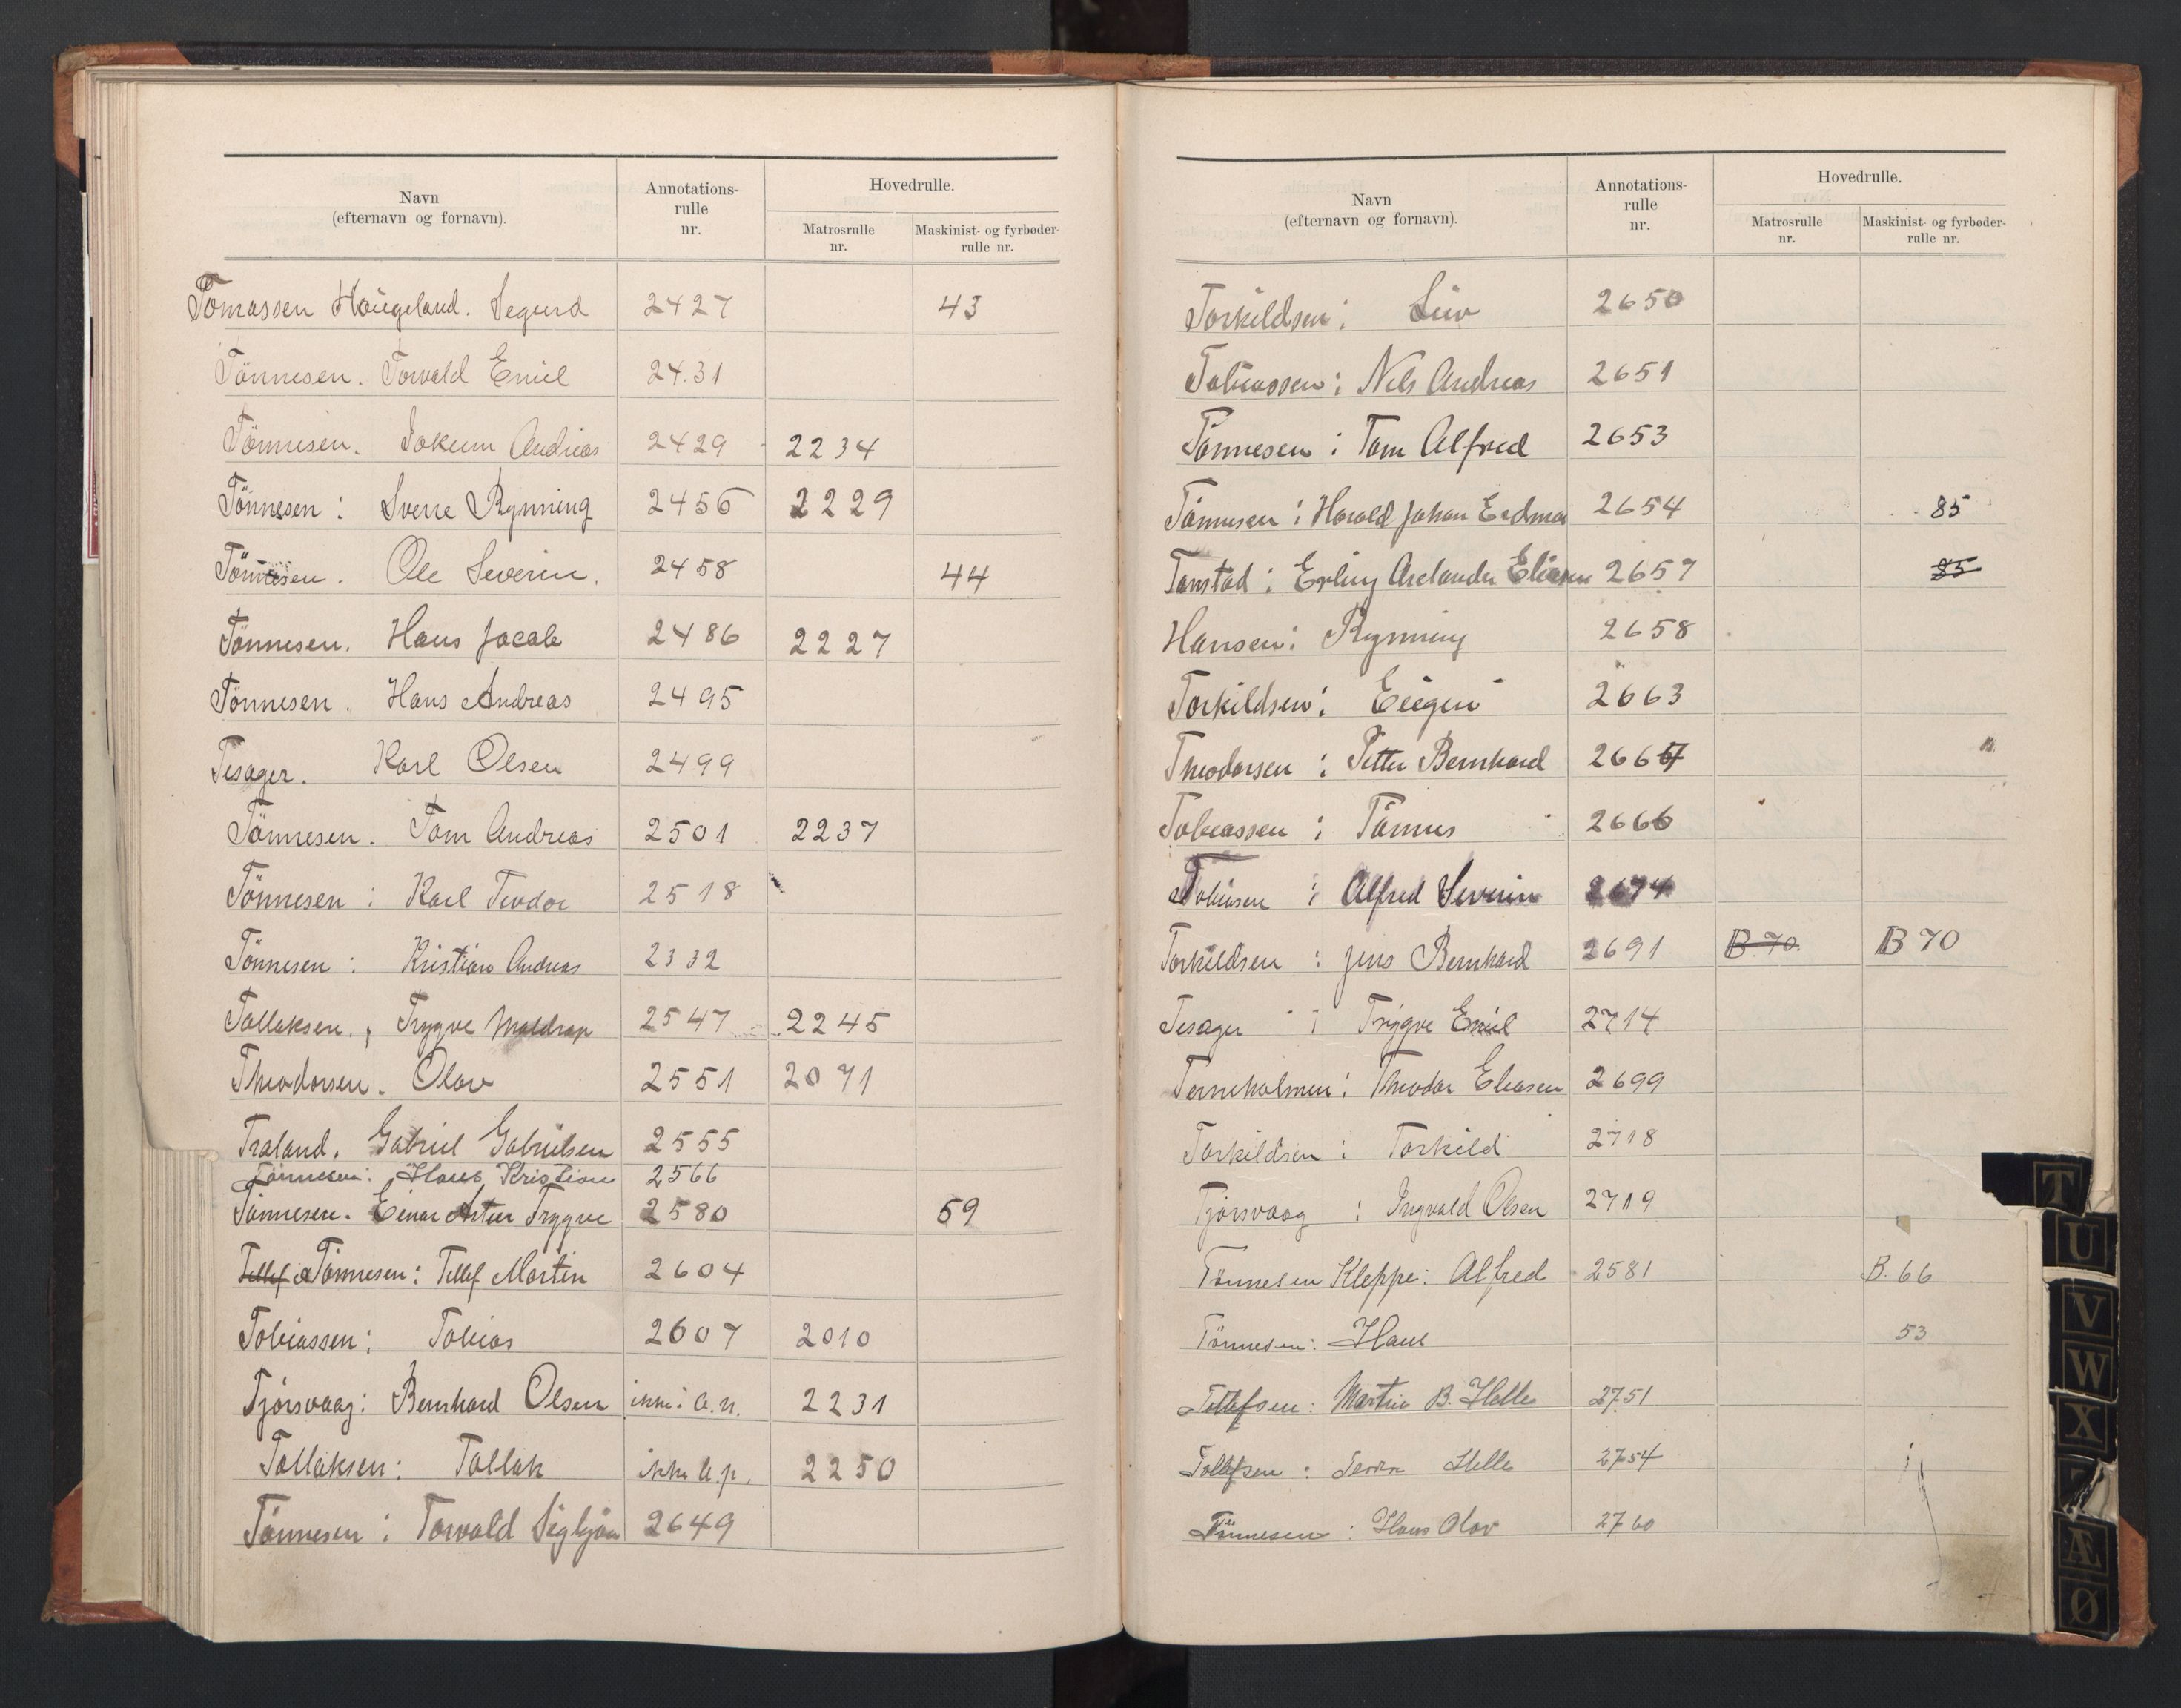 Navn
(efternavn og fornavn).
Annotations-
rulle
nr.
Hovedrulle.
Matrosrulle
nr.
Maskinist- og fyrbøder-
rulle nr.
Tomassen Haugeland. Segurd 2427 43
Tönnesen. Torvald Emil 24.31
Tönnesen. Jokum Andreas 2429 2234
Tönnesen: Sverre Rynning 2456 2229
Tönnesen. Ole Severin. 2458 44
Tönnesen. Hans Jacob 2486 2227
Tönnesen. Hans Andreas 2495
Tesager. Karl Olsen 2499
Tönnesen. Tom Andreas 2501 2237
Tönnesen: Karl Teodor 2518
Tönnesen: Kristian Andreas 2332
Tallaksen., Trygve 2547 2245
Theodorsen. Olav 2551 2071
Traland. Gabriel Gabrielsen 2555
Tönnesen: Hans Kristian 2566
Tönnesen. Einar Artur Trygve 2580 59
Tellef Tönnesen: Tellef Martin 2604
Tobiassen: Tobias 2607 2010
Tjörsvaag: Bernhard Olsen ikke i a.r. 2231
Tallaksen: Tallak ikke 2250
Tönnesen: Torvald Sigbjörn 2649
Navn
(efternavn og fornavn).
Annotations-
rulle
nr.
Hovedrulle.
Matrosrulle
nr.
Maskinist- og fyrbøder-
rulle nr.
Torkildsen: 2650
Tobiassen: Nils Andreas 2651
Tönnesen: Tom Alfred 2653
Tönnesen: Harald Johan 2654 85
Tanstad: Erling Eliasen 2657 85
Hansen: Rynning 2658
Torkildsen: Eugen 2663
Theodorsen: Petter Bernhard
Tobiassen: Tönnes 2666
Alfred Severin 2674
Torkildsen: Jens Bernhard 2691 B 70. B 70
Tesager: Trygve Emil 2714
Terneholmen: Theodor Eliasen 2699
Torkildsen: Torkild 2718
Tjörsvaag: Ingvald Olsen 2719
Tönnesen Kleppe: Alfred 2581 B. 66
Tönnesen: Hans 53
Tellefsen: Martin B. Helle 2751
Tellefsen: Helle 2754
Tönnesen: Hans Olav 2760
T
U
V
W
X
Æ
Ø